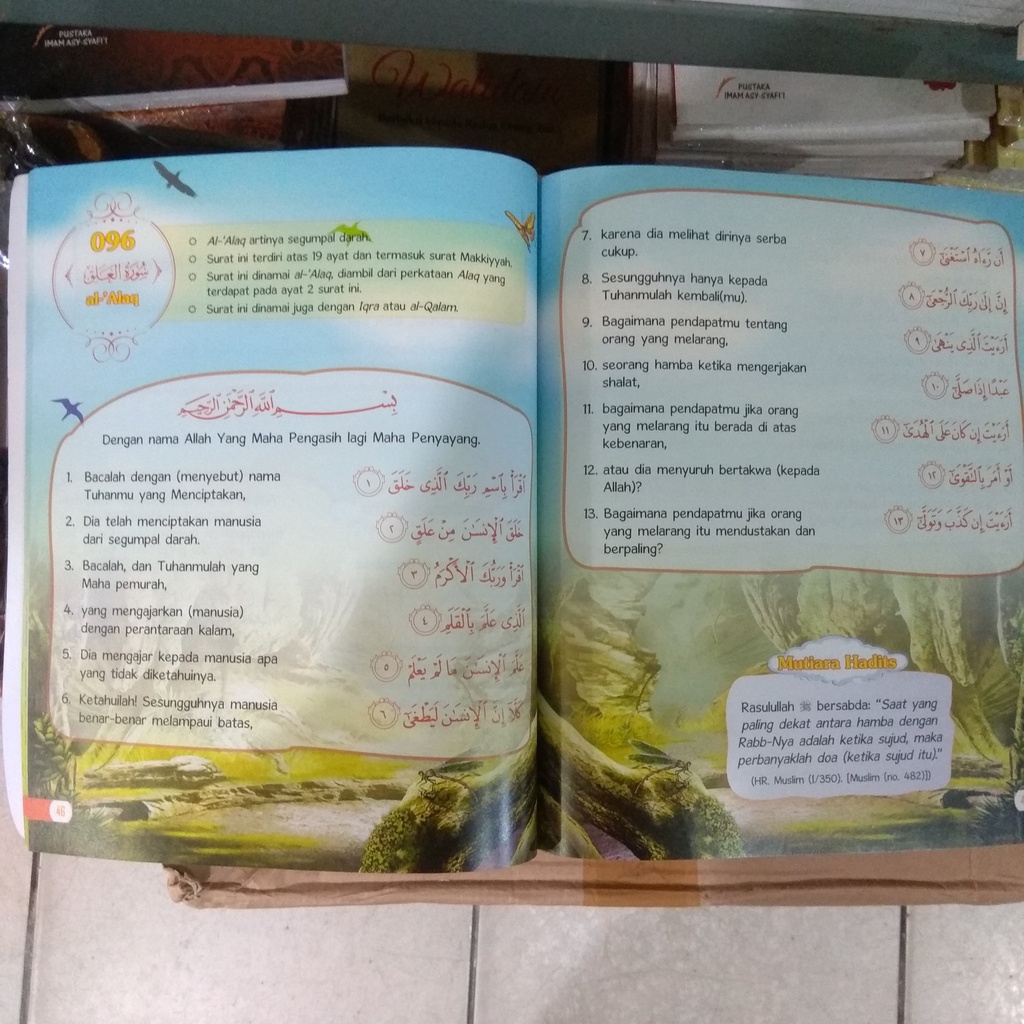 PUSTAKA
IMAM ASY-SYAFI'I
PUSTAKA
IMAM ASY-SYAFI'I
096
سُورَةُ الْعَلَقِ
al-'Alaq
Al-'Alaq artinya segumpal darah.
Surat ini terdiri atas 19 ayat dan termasuk surat Makkiyyah.
Surat ini dinamai al-'Alaq, diambil dari perkataan Alaq yang
terdapat pada ayat 2 surat ini.
Surat ini dinamai juga dengan Iqra atau al-Qalam.
بِسْمِ اللَّهِ الرَّحْمَٰنِ الرَّحِيمِ
Dengan nama Allah Yang Maha Pengasih lagi Maha Penyayang.
1. Bacalah dengan (menyebut) nama
Tuhanmu yang Menciptakan,
اقْرَأْ بِاسْمِ رَبِّكَ الَّذِي خَلَقَ ١
2. Dia telah menciptakan manusia
dari segumpal darah.
خَلَقَ الْإِنسَٰنَ مِنْ عَلَقٍ ٢
3. Bacalah, dan Tuhanmulah yang
Maha pemurah,
اقْرَأْ وَرَبُّكَ الْأَكْرَمُ ٣
4. yang mengajarkan (manusia)
dengan perantaraan kalam,
الَّذِي عَلَّمَ بِالْقَلَمِ ٤
5. Dia mengajar kepada manusia apa
yang tidak diketahuinya.
عَلَّمَ الْإِنسَٰنَ مَا لَمْ يَعْلَمْ ٥
6. Ketahuilah! Sesungguhnya manusia
benar-benar melampaui batas,
كَلَّا إِنَّ الْإِنسَٰنَ لَيَطْغَىٰ ٦
46
7. karena dia melihat dirinya serba
cukup.
أَن رَّءَاهُ اسْتَغْنَىٰ ٧
8. Sesungguhnya hanya kepada
Tuhanmulah kembali(mu).
إِنَّ إِلَىٰ رَبِّكَ الرُّجْعَىٰ ٨
9. Bagaimana pendapatmu tentang
orang yang melarang,
أَرَءَيْتَ الَّذِي يَنْهَىٰ ٩
10. seorang hamba ketika mengerjakan
shalat,
عَبْدًا إِذَا صَلَّىٰ ١٠
11. bagaimana pendapatmu jika orang
yang melarang itu berada di atas
kebenaran,
أَرَءَيْتَ إِن كَانَ عَلَى الْهُدَىٰ ١١
12. atau dia menyuruh bertakwa (kepada
Allah)?
أَوْ أَمَرَ بِالتَّقْوَىٰ ١٢
13. Bagaimana pendapatmu jika orang
yang melarang itu mendustakan dan
berpaling?
أَرَءَيْتَ إِن كَذَّبَ وَتَوَلَّىٰ ١٣
Mutiara Hadits
Rasulullah ﷺ bersabda: "Saat yang
paling dekat antara hamba dengan
Rabb-Nya adalah ketika sujud, maka
perbanyaklah doa (ketika sujud itu)."
(HR. Muslim (1/350). [Muslim (no. 482)])